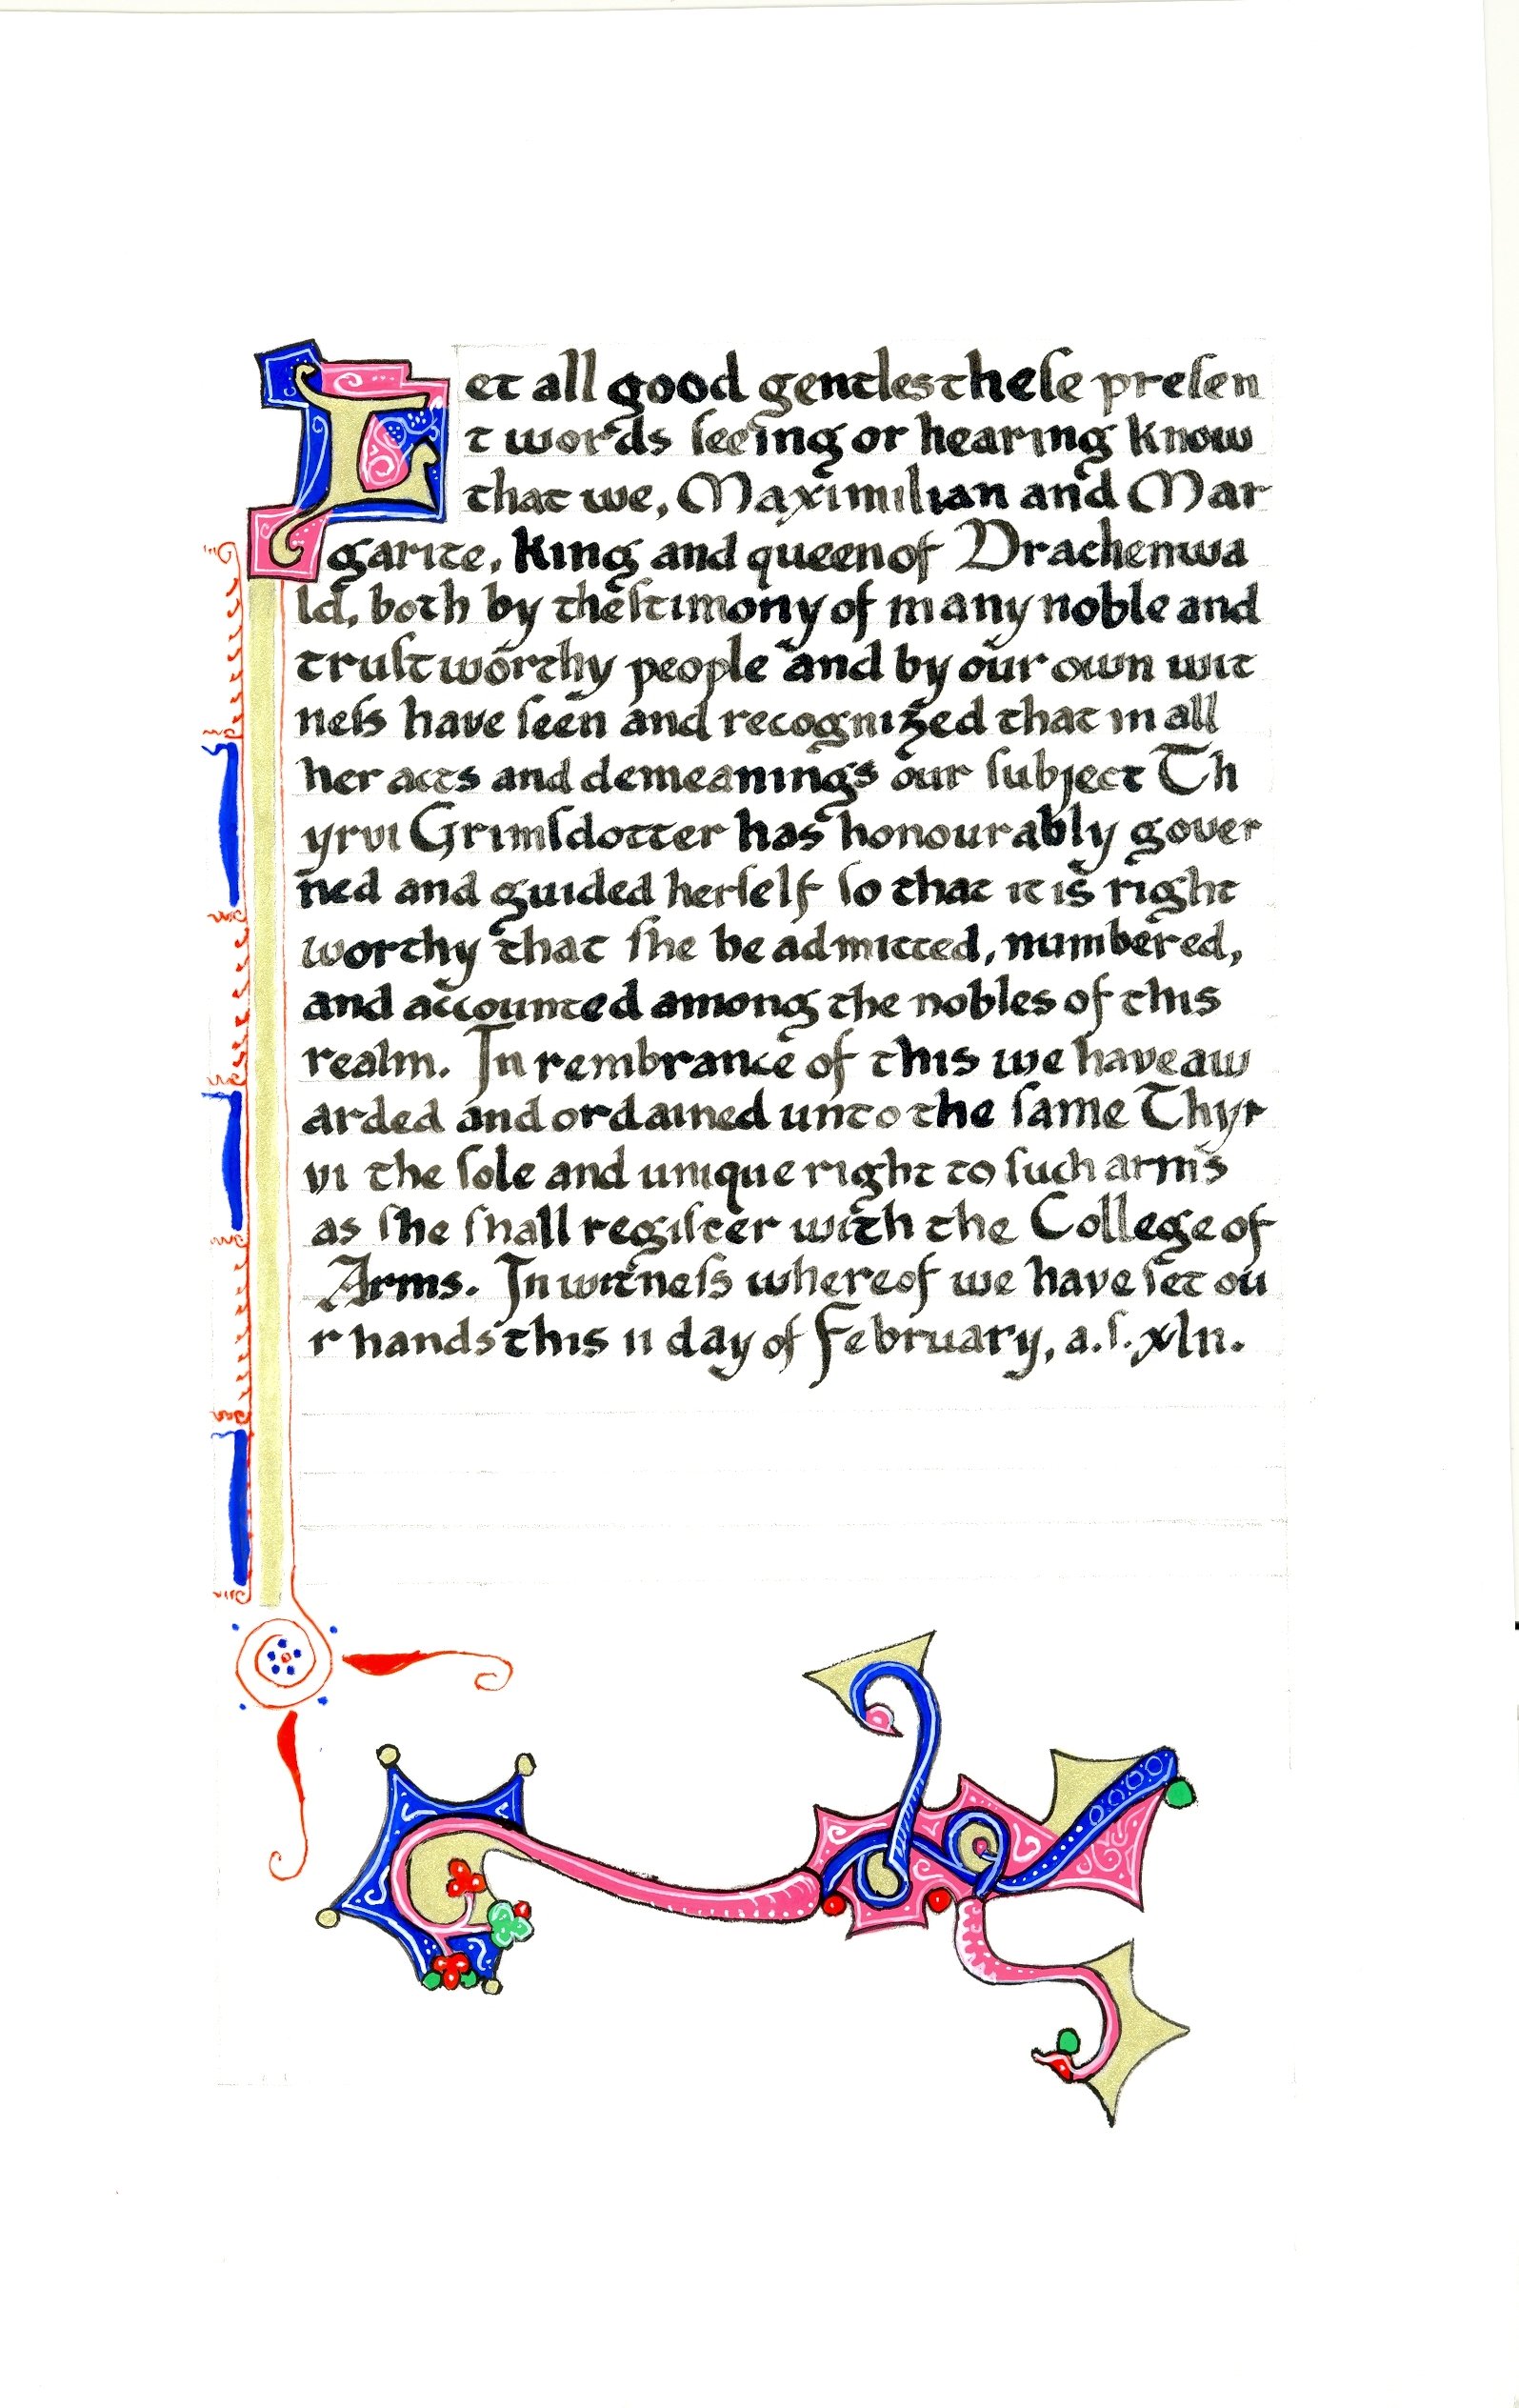 Let all good gentles theſe preſen
t words ſeeing or hearing know
that we, Maximilian and Mar
garite, King and queen of Drachenwa
ld, both by theſtimony of many noble and
truſtworthy people and by our own wit
neſs have ſeen and recognized that in all
her acts and demeanings our ſubject Th
yrvi Grimſdotter has honourably gover
ned and guided herſelf ſo that it is right
worthy that ſhe be admitted, numbered,
and accounted among the nobles of this
realm. In rembrance of this we have aw
arded and ordained unto the ſame Thyr
vi the ſole and unique right to ſuch arms
as ſhe ſhall regiſter with the College of
Arms. In witneſs whereof we have ſet ou
r hands this 11 day of February, a.ſ. xlii.